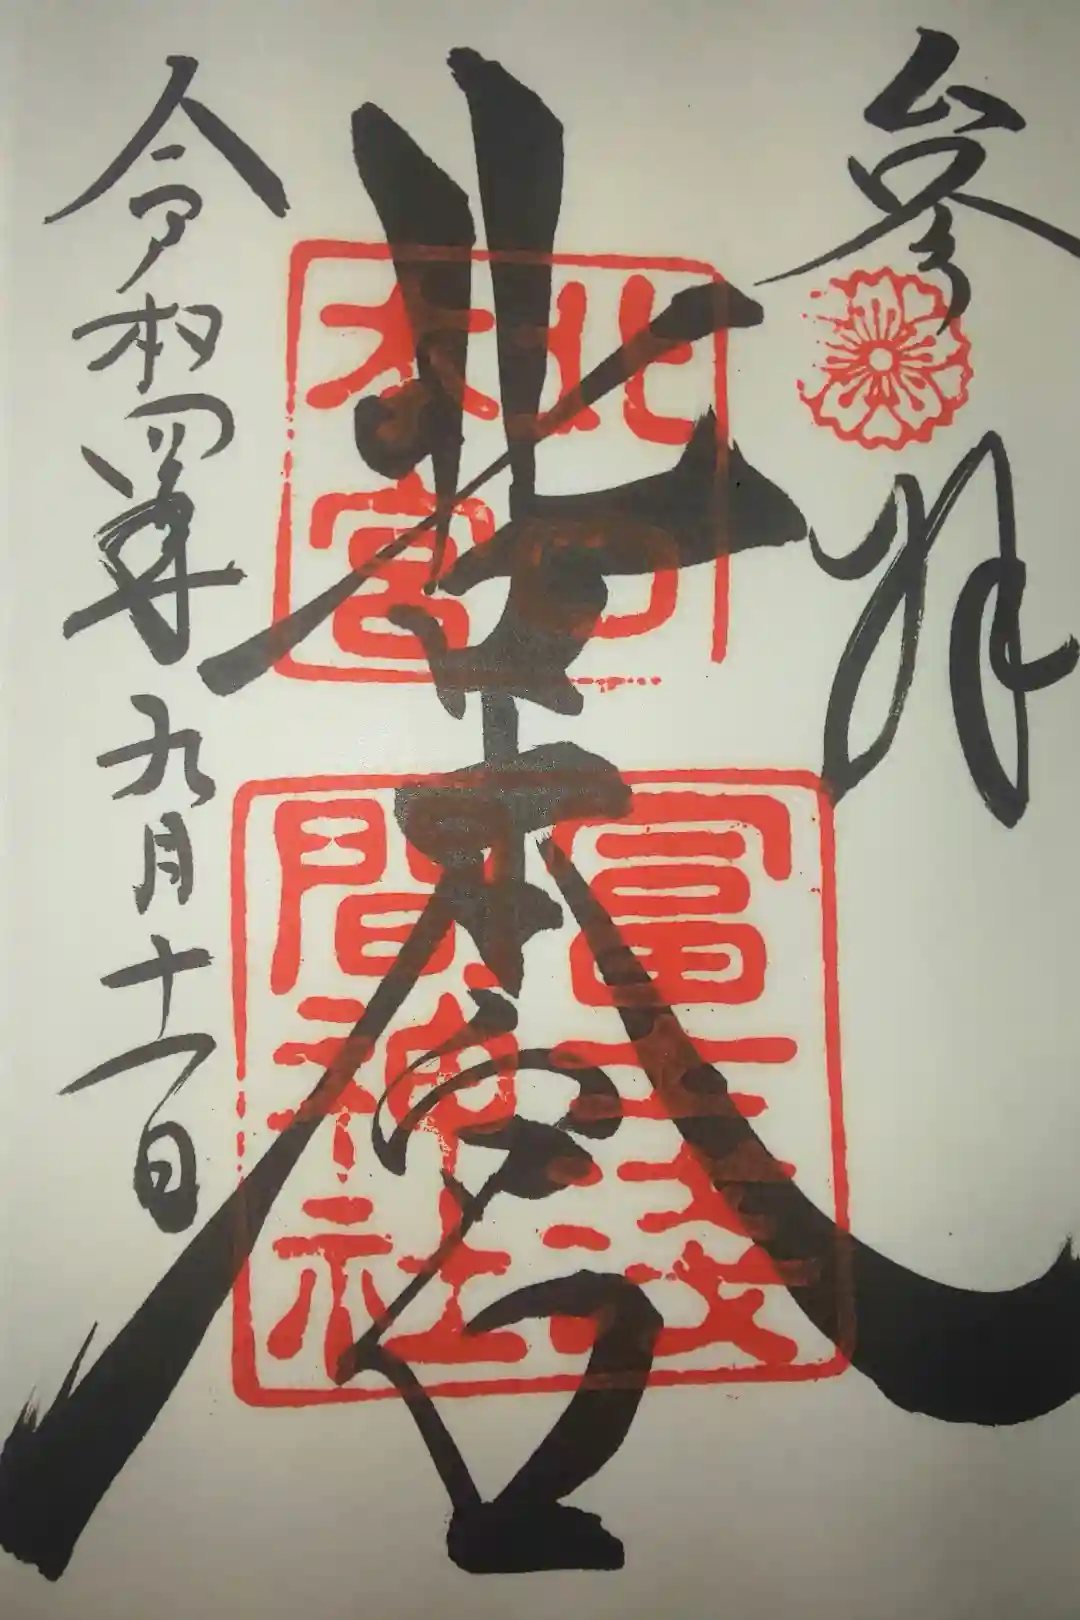 參拜
北口本宮
北口
本宮
冨士浅
間神社
令和四年九月十一日